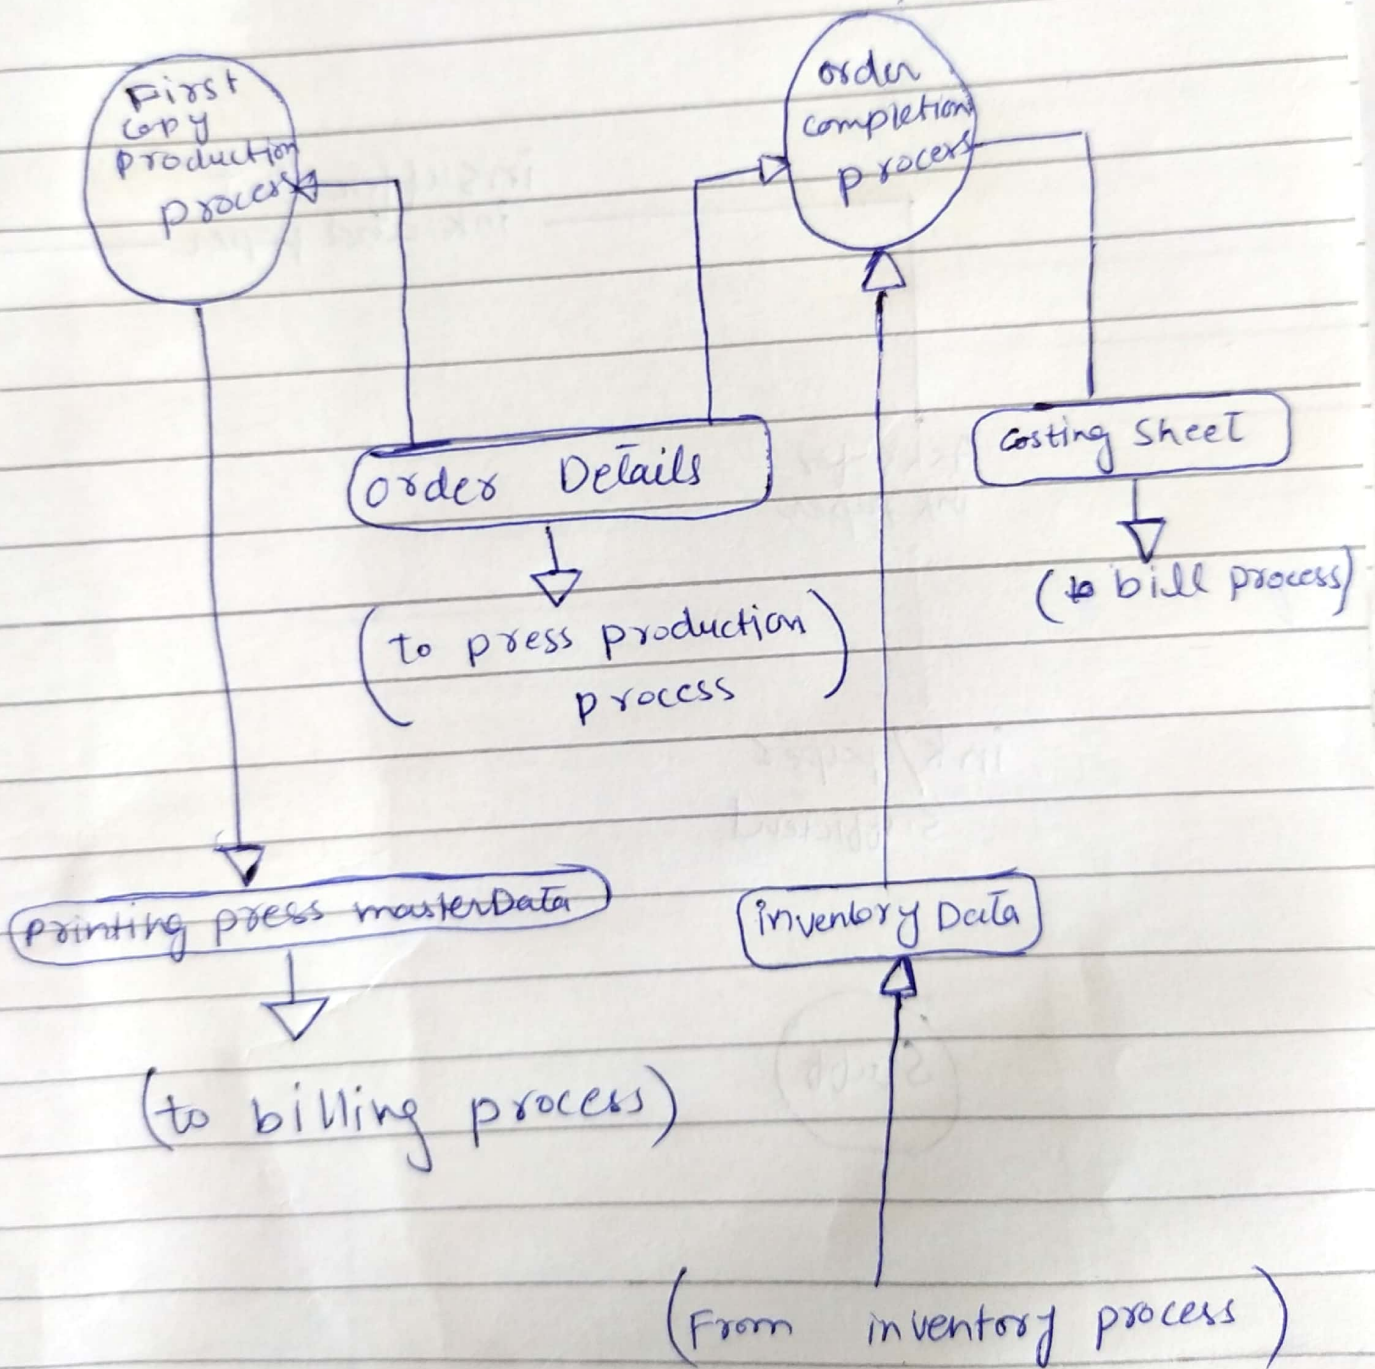 First
copy
production
process
order
completion
process
order Details
costing sheet
(to press production
process)
(to bill process)
printing press masterData
inventory Data
(to billing process)
(From inventory process)